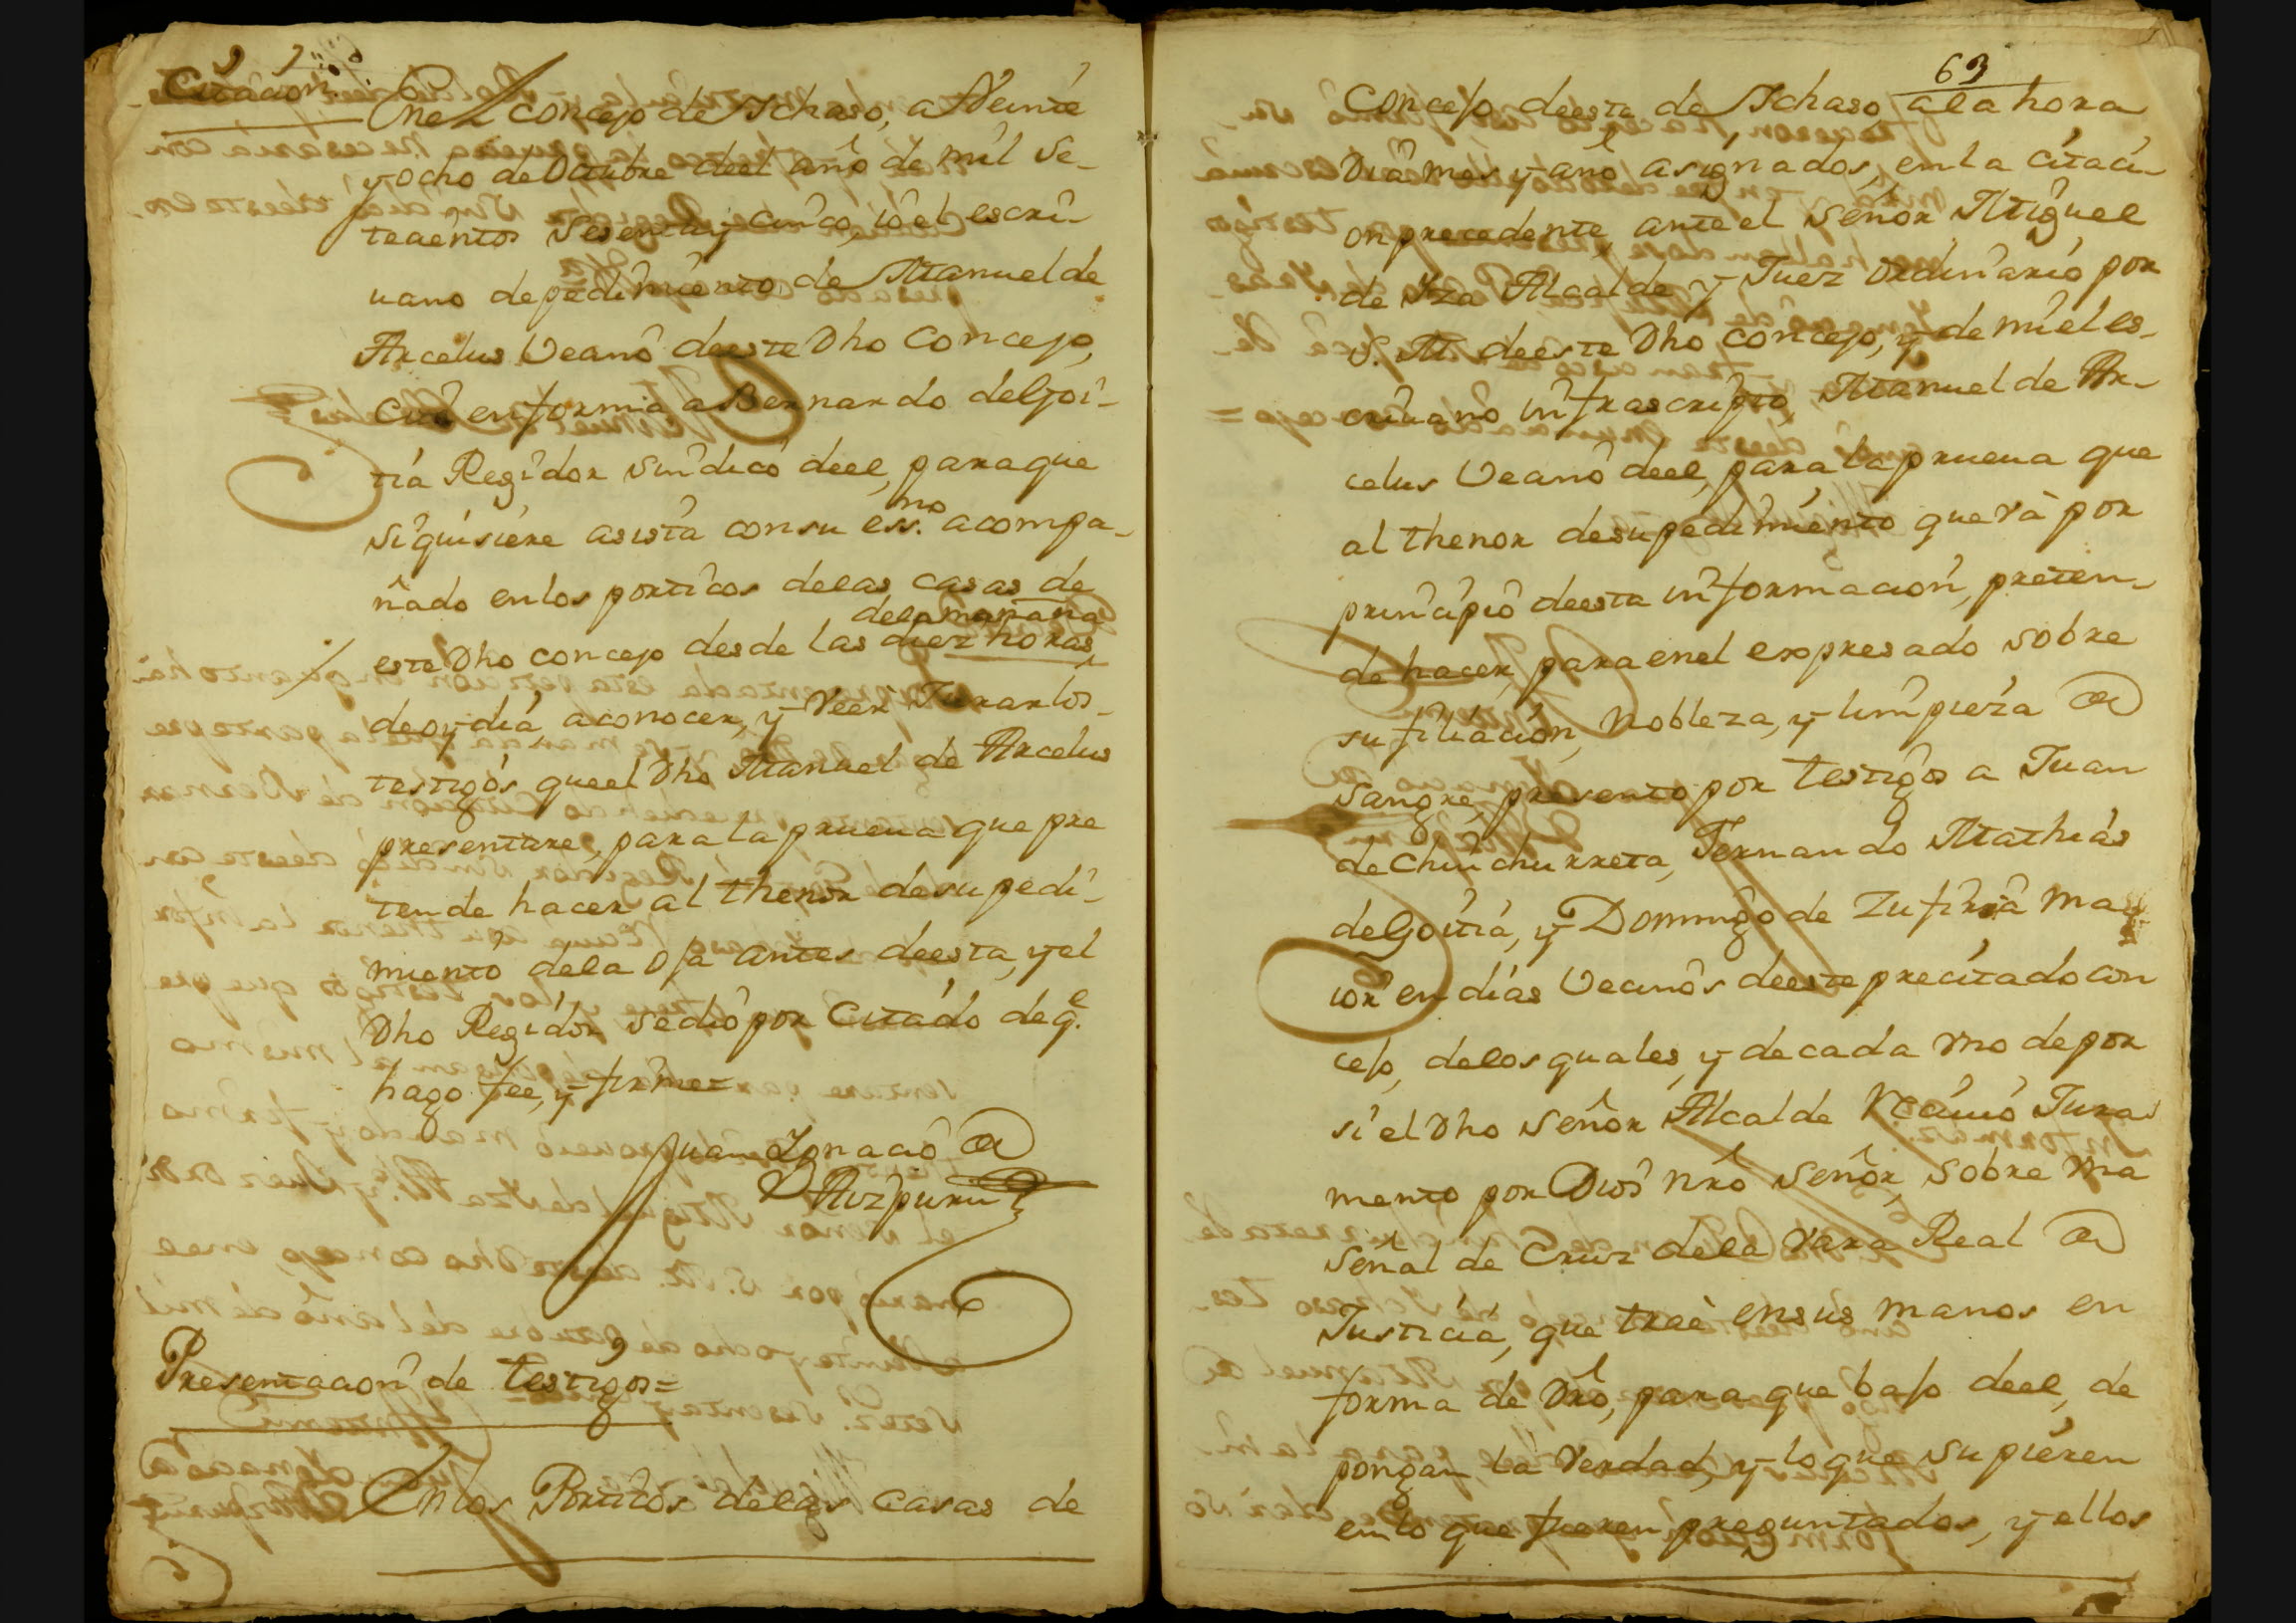 Citacion
En el concejo de Ichaso, a Veinte
y ocho de Octubre deel año de mil Se-
tecientos Sesenta y cinco, io el escri-
uano de pedimiento de Manuel de
Arcelus Vecino de este Dho Concejo,
cité en forma a Bernardo de Goi-
tia Regidor Sindico deel, para que
si quisiere asista con su ess.no acompa-
ñado en los porticos de las casas de
de la mañana
este Dho concejo desde las diez horas
de oy dia, a conocer, y Veer Jurar los
testigos que el Dho Manuel de Arcelus
presentare, para la prueua que pre
tende hacer al thenor de su pedi-
miento de la oja antes de esta, y el
Dho Regidor se dió por Citado de q.e
hago fee, y firme=
Juan Ignacio de
Aizpuru
Presentacion de testigos=
En los Porticos de las casas de
63
Concejo de este de Ichaso, a la hora
Dia mes y año asignados, en la citaci-
on precedente, ante el Señor Miguel
de Yza Alcalde y Juez ordinario por
S. M. de este Dho concejo, y de mi el es-
criuano infrascripto, Manuel de Ar-
celus Vecino deel, para la prueua que
al thenor de su pedimiento que và por
principio de esta informacion, preten-
de hacer, para en el expresado sobre
su filiacion, Nobleza, y limpieza de
sangre, presento por testigos a Juan
de Chinchurreta, Fernando Mathias
de Goitia, y Domingo de Zufiria ma
ior en dias Vecinos de este precitado con
cejo, de los quales, y de cada vno de por
si el Dho Señor Alcalde Reciuió Jura
mento por Dios nro Señor, sobre vna
Señal de Cruz de la Vara Real de
Justicia, que traè en sus manos en
forma de dro, para que bajo deel, de
pongan la Verdad, y lo que supieren
en lo que fueren preguntados, y ellos